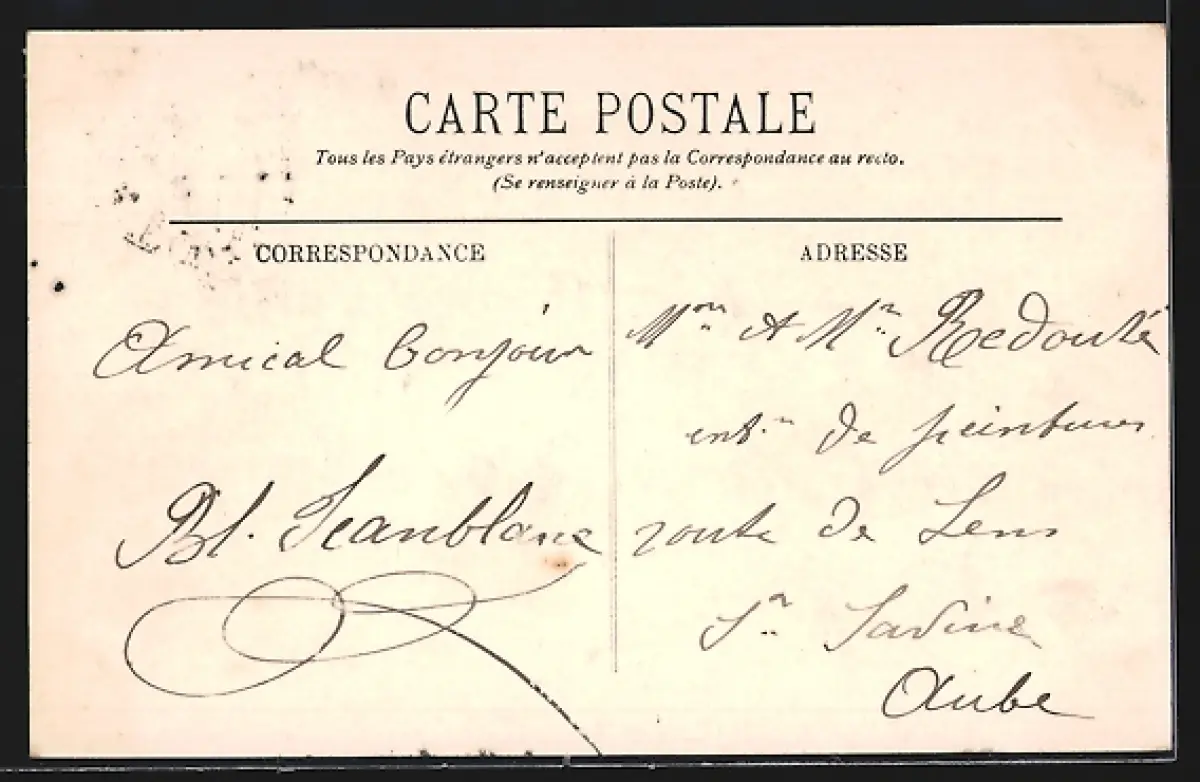 CARTE POSTALE
Tous les Pays étrangers n'acceptent pas la Correspondance au recto.
(Se renseigner à la Poste).
CORRESPONDANCE
Amical bonjour
Bl. Jeanblanc
ADRESSE
Mon et Mme Redouté
ent.n de peintures
route de Sens
Ste Savine
Aube